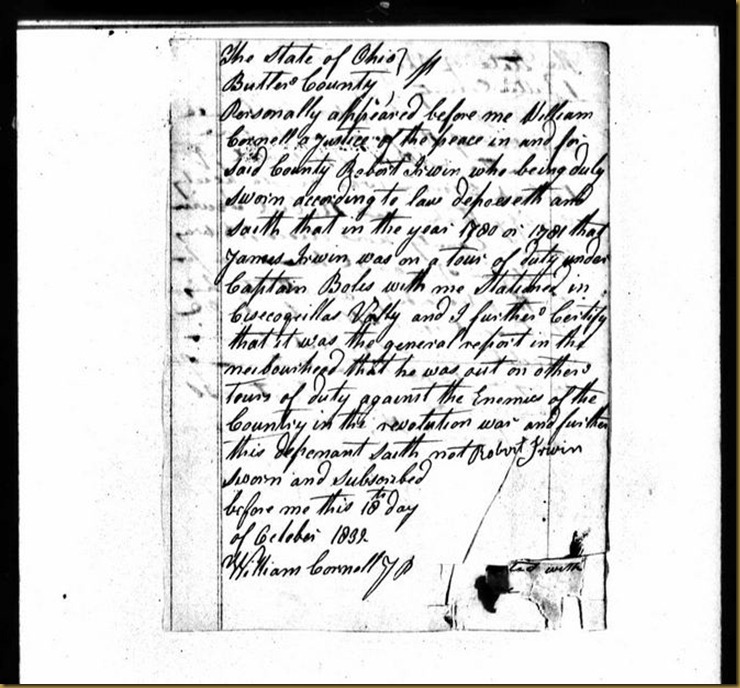 The State of Ohio } ss
Butler County
Personally appeared before me William
Cornell a Justice of the peace in and for
said County Robert Irwin who being duly
sworn according to law deposeth and
saith that in the year 1780 or 1781 that
James Irwin was on a tour of duty under
Captain Boles with me Stationed in
Cisecoquillas Vally and I further Certify
that it was the general report in the
neibourhood that he was out on other
tours of duty against the Enemies of the
Country in the revolution war and further
this deponant saith not Robert Irwin
sworn and subscribed
before me this 18th day
of October 1832
William Cornell J P
with